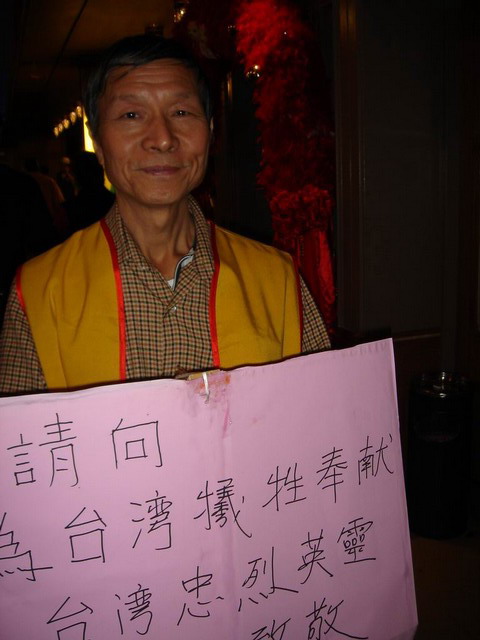 請向
為台湾犧牲奉献
台湾忠烈英靈
致敬